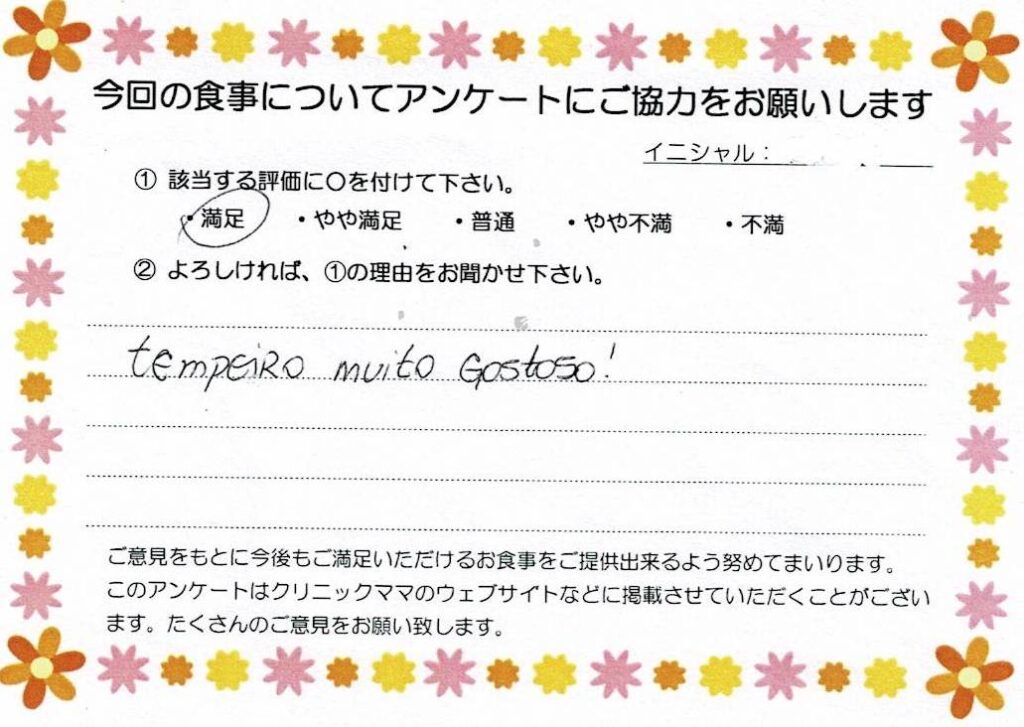 今回の食事についてアンケートにご協力をお願いします
イニシャル：
① 該当する評価に〇を付けて下さい。
・満足 ・やや満足 ・普通 ・やや不満 ・不満
② よろしければ、①の理由をお聞かせ下さい。
tempeiro muito Gostoso!
ご意見をもとに今後もご満足いただけるお食事をご提供出来るよう努めてまいります。
このアンケートはクリニックママのウェブサイトなどに掲載させていただくことがござい
ます。たくさんのご意見をお願い致します。